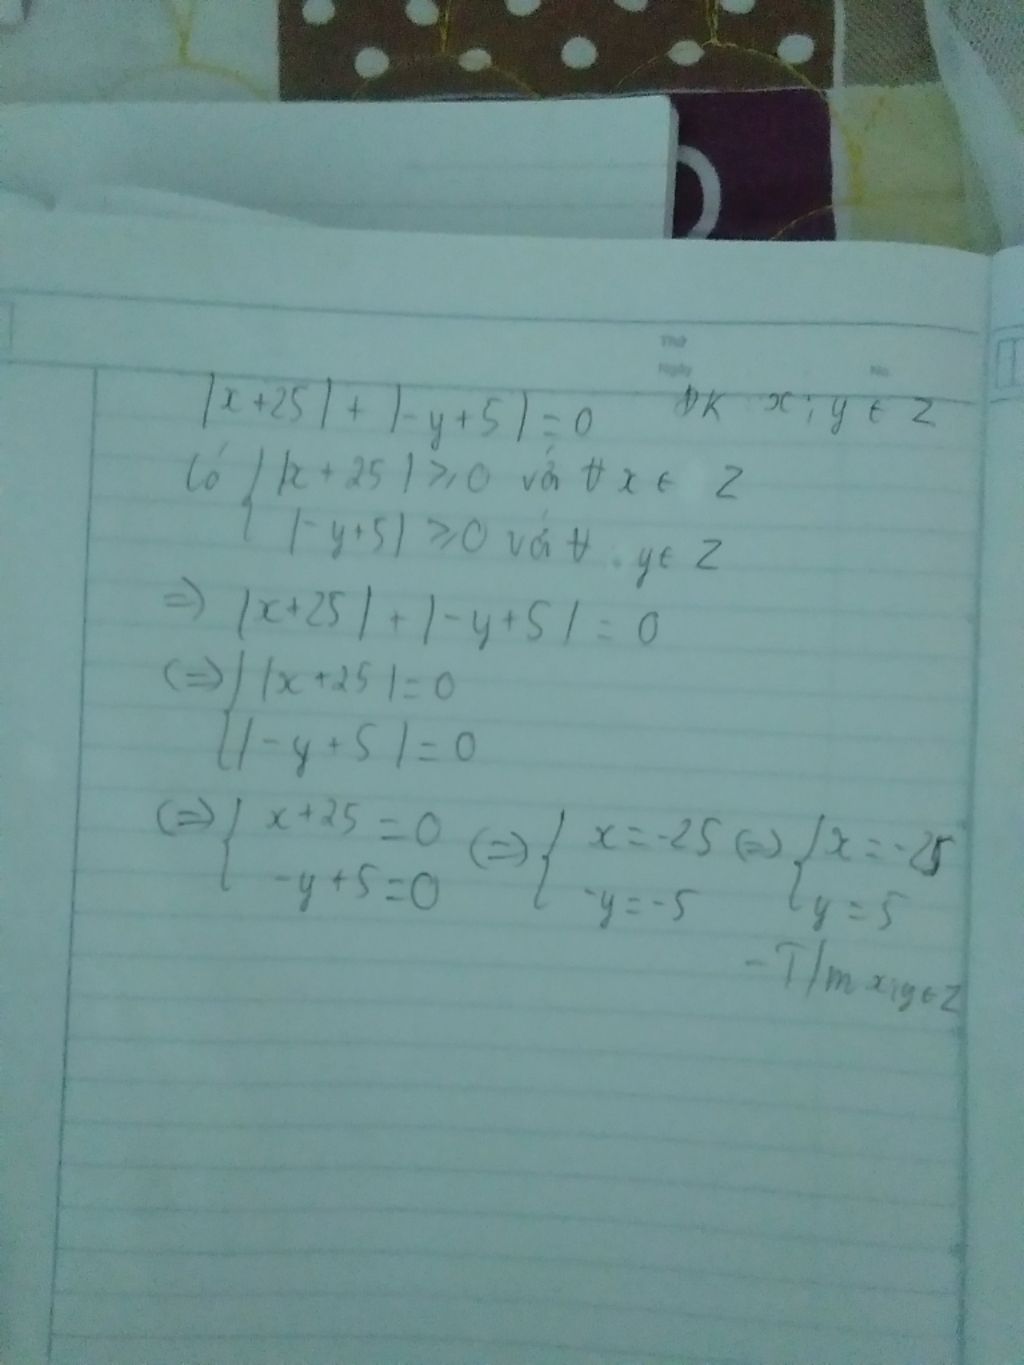 Thứ
Ngày No.
|x+25| + |-y+5| = 0 ĐK: x; y ∈ Z
Có { |x+25| ≥ 0 với ∀ x ∈ Z
|-y+5| ≥ 0 với ∀ y ∈ Z
=> |x+25| + |-y+5| = 0
(=>) { |x+25| = 0
|-y+5| = 0
(=>) { x+25 = 0 (=>) { x = -25 (=>) { x = -25
-y+5 = 0 -y = -5 y = 5
- T/m x; y ∈ Z